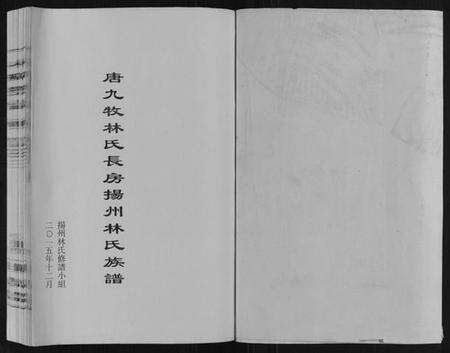 唐九牧林氏長房揚州林氏族譜
揚州林氏修譜小組
二〇一五年十二月